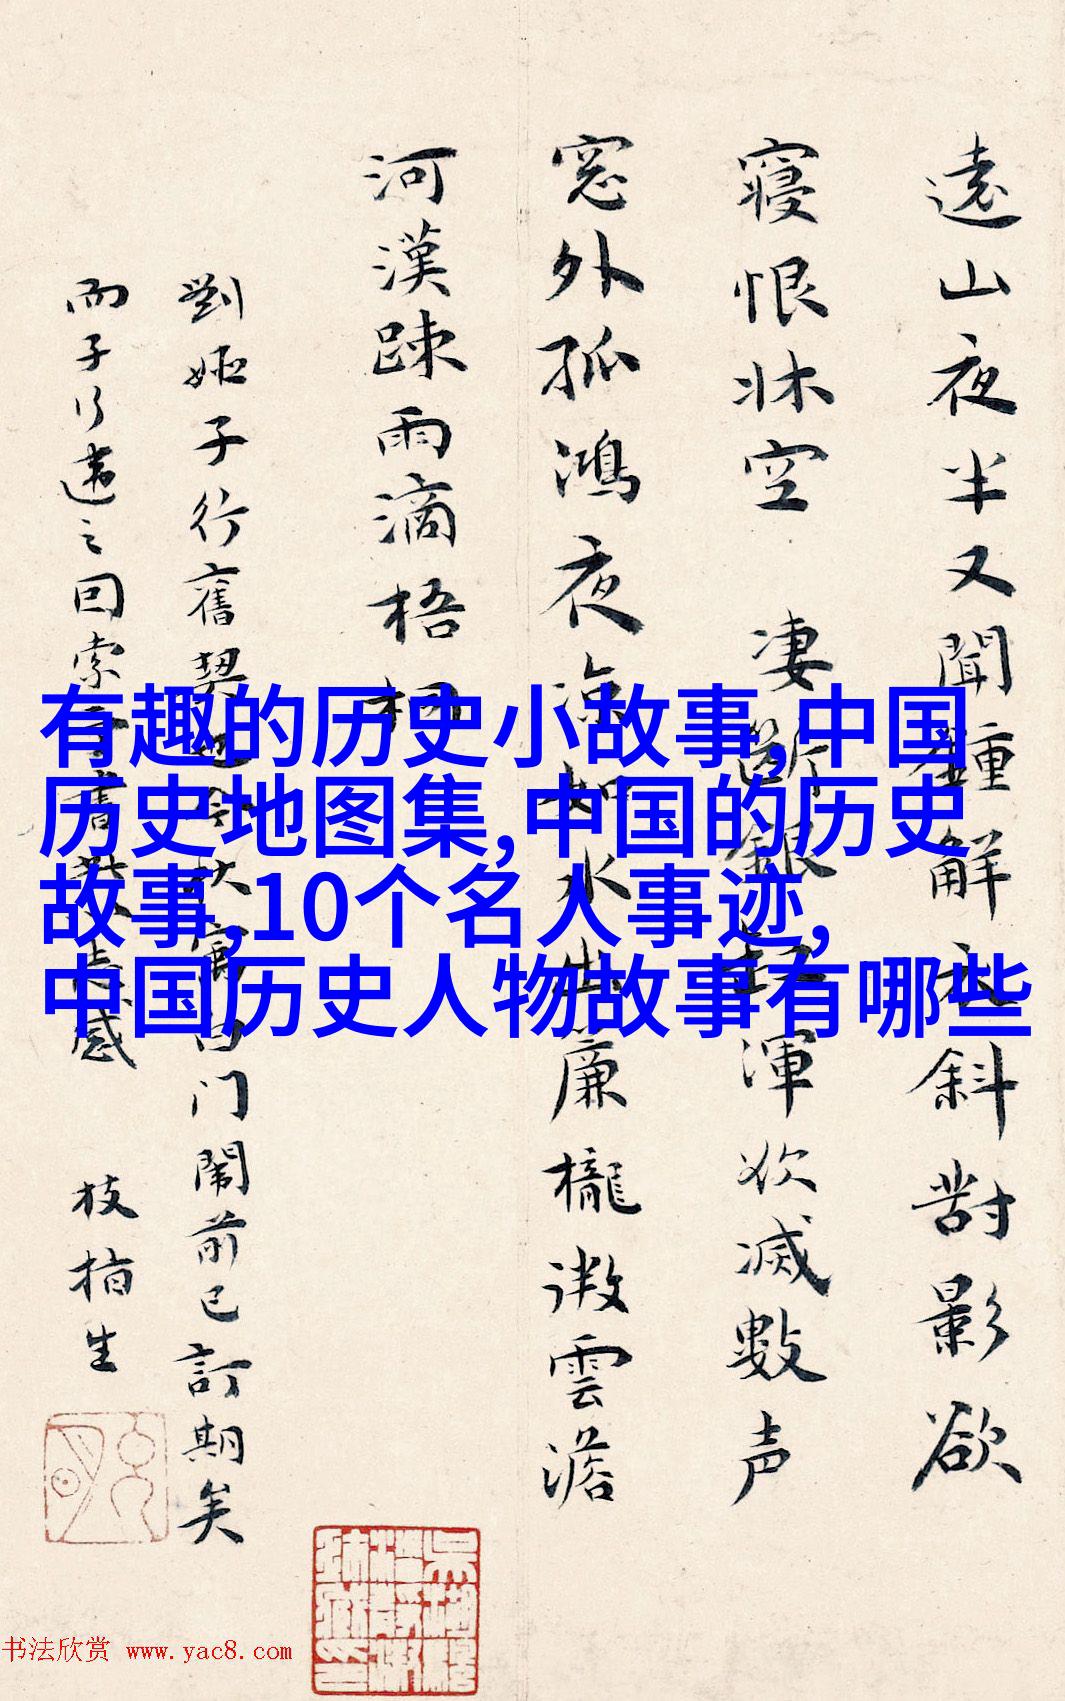 有趣的历史小故事,中国
历史地图集,中国的历史
故事,10个名人事迹,
中国历史人物故事有哪些
遠山夜半又聞鍾解斜對影欲
寢恨牀空 凄斷銀渾欲滅數声
窓外孤鴻夜涼如水出廉櫳微雲澹
河漢疎雨滴梧桐
劉姬子行舊契门鬧前已訂期矣
而子行違之回索書感 枝指生
书法欣赏 www.yac8.com